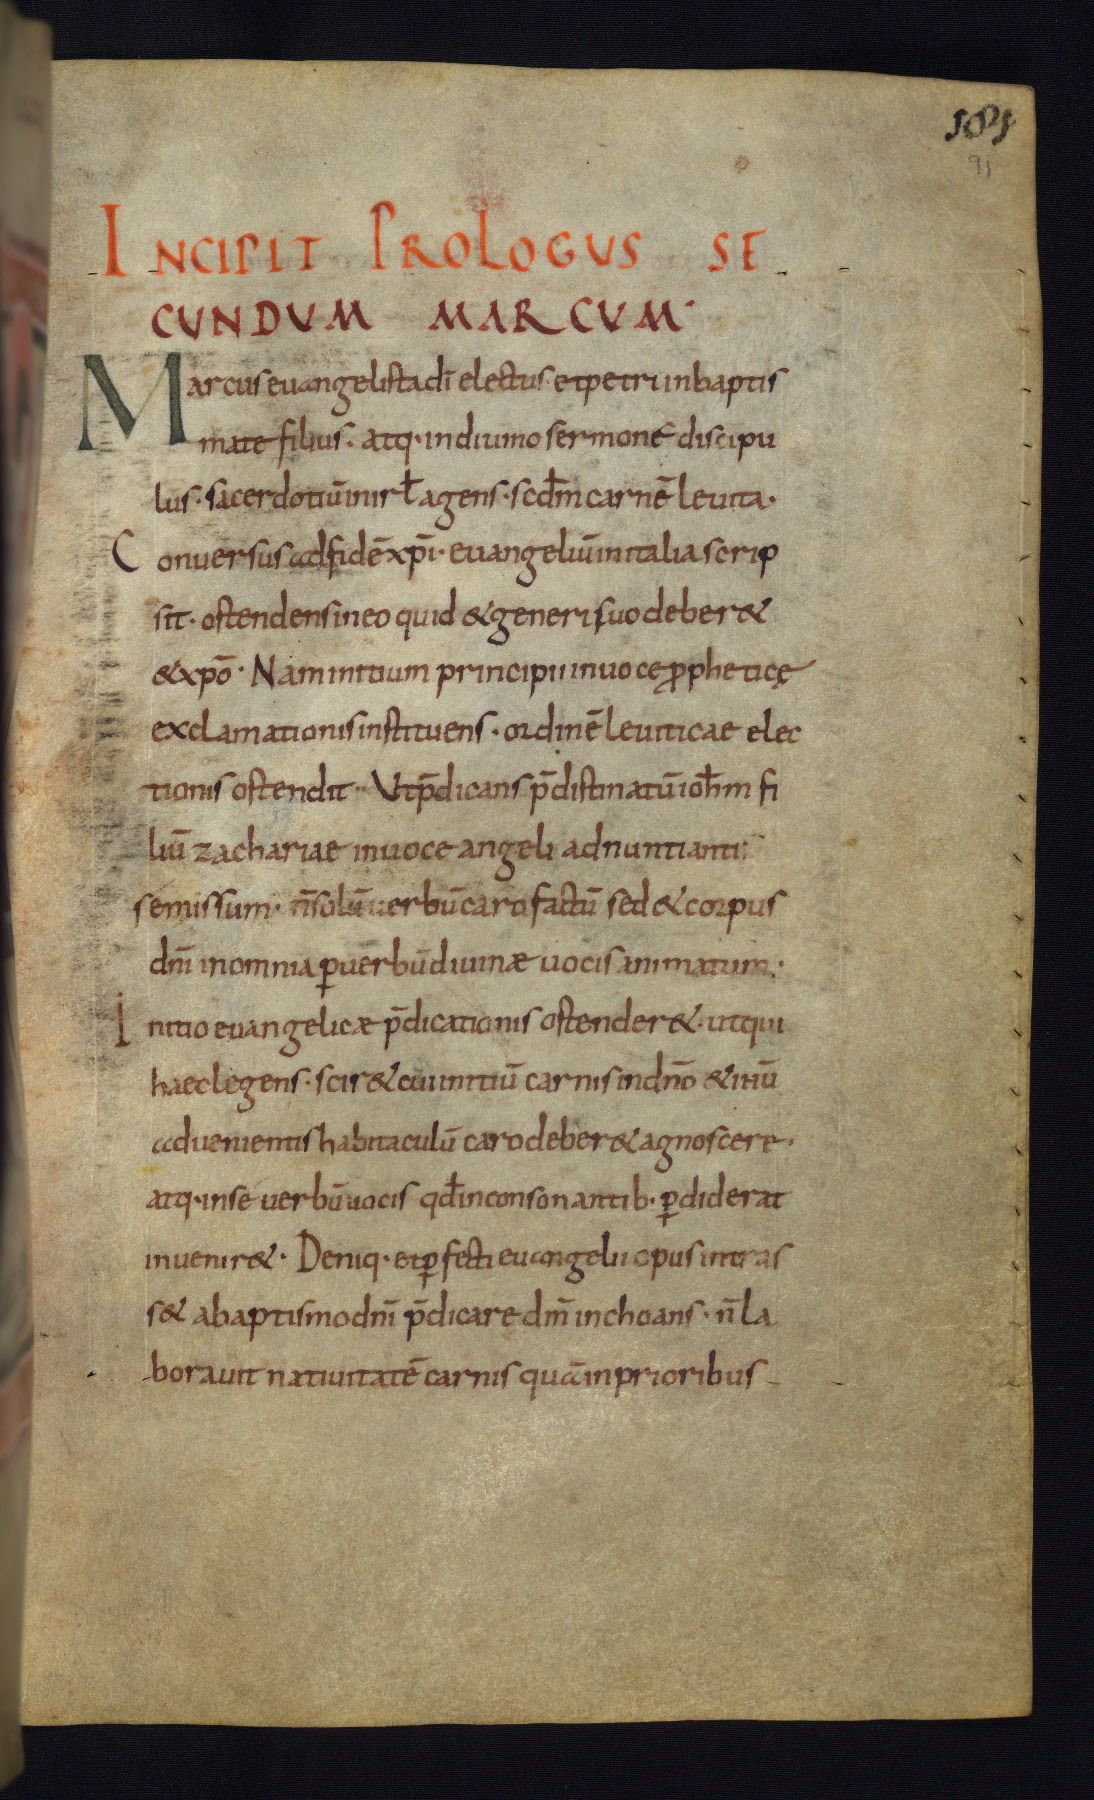 181
91
INCIPIT PROLOGUS SE
CUNDUM MARCUM·
Marcus euangelista dī electus· et petri in baptis
mate filius· atq· in diuino sermone discipu
lus· sacerdotiū in isrl̄ agens· scdm̄ carnē leuita·
Conuersus ad fidē xp̄i· euangeliū in italia scrip
sit· ostendens in eo quid & generi suo deber&
& xpō· Nam initium principii in uoce ꝓpheticę
exclamationis instituens· ordinē leuiticae elec
tionis ostendit· Ut p̄dicans p̄distinatū ioh̄m fi
liū zachariae in uoce angeli adnuntianti;
semissum· n̄ solū uerbū caro factū sed & corpus
dnī in omnia ꝑ uerbū diuinæ uocis animatum·
Initio euangelicæ p̄dicationis ostender&· ut qui
haec legens· scir& cui initiū carnis in dnō & ihū
aduenientis habitaculū caro deber& agnoscere·
atq· in se uerbū uocis qd̄ in consonantib· ꝑdiderat
inuenir&· Deniq· et ꝑfecti euangelii opus intras
s& a baptismo dnī p̄dicare dm̄ inchoans· n̄ la
borauit natiuitatē carnis quā in prioribus